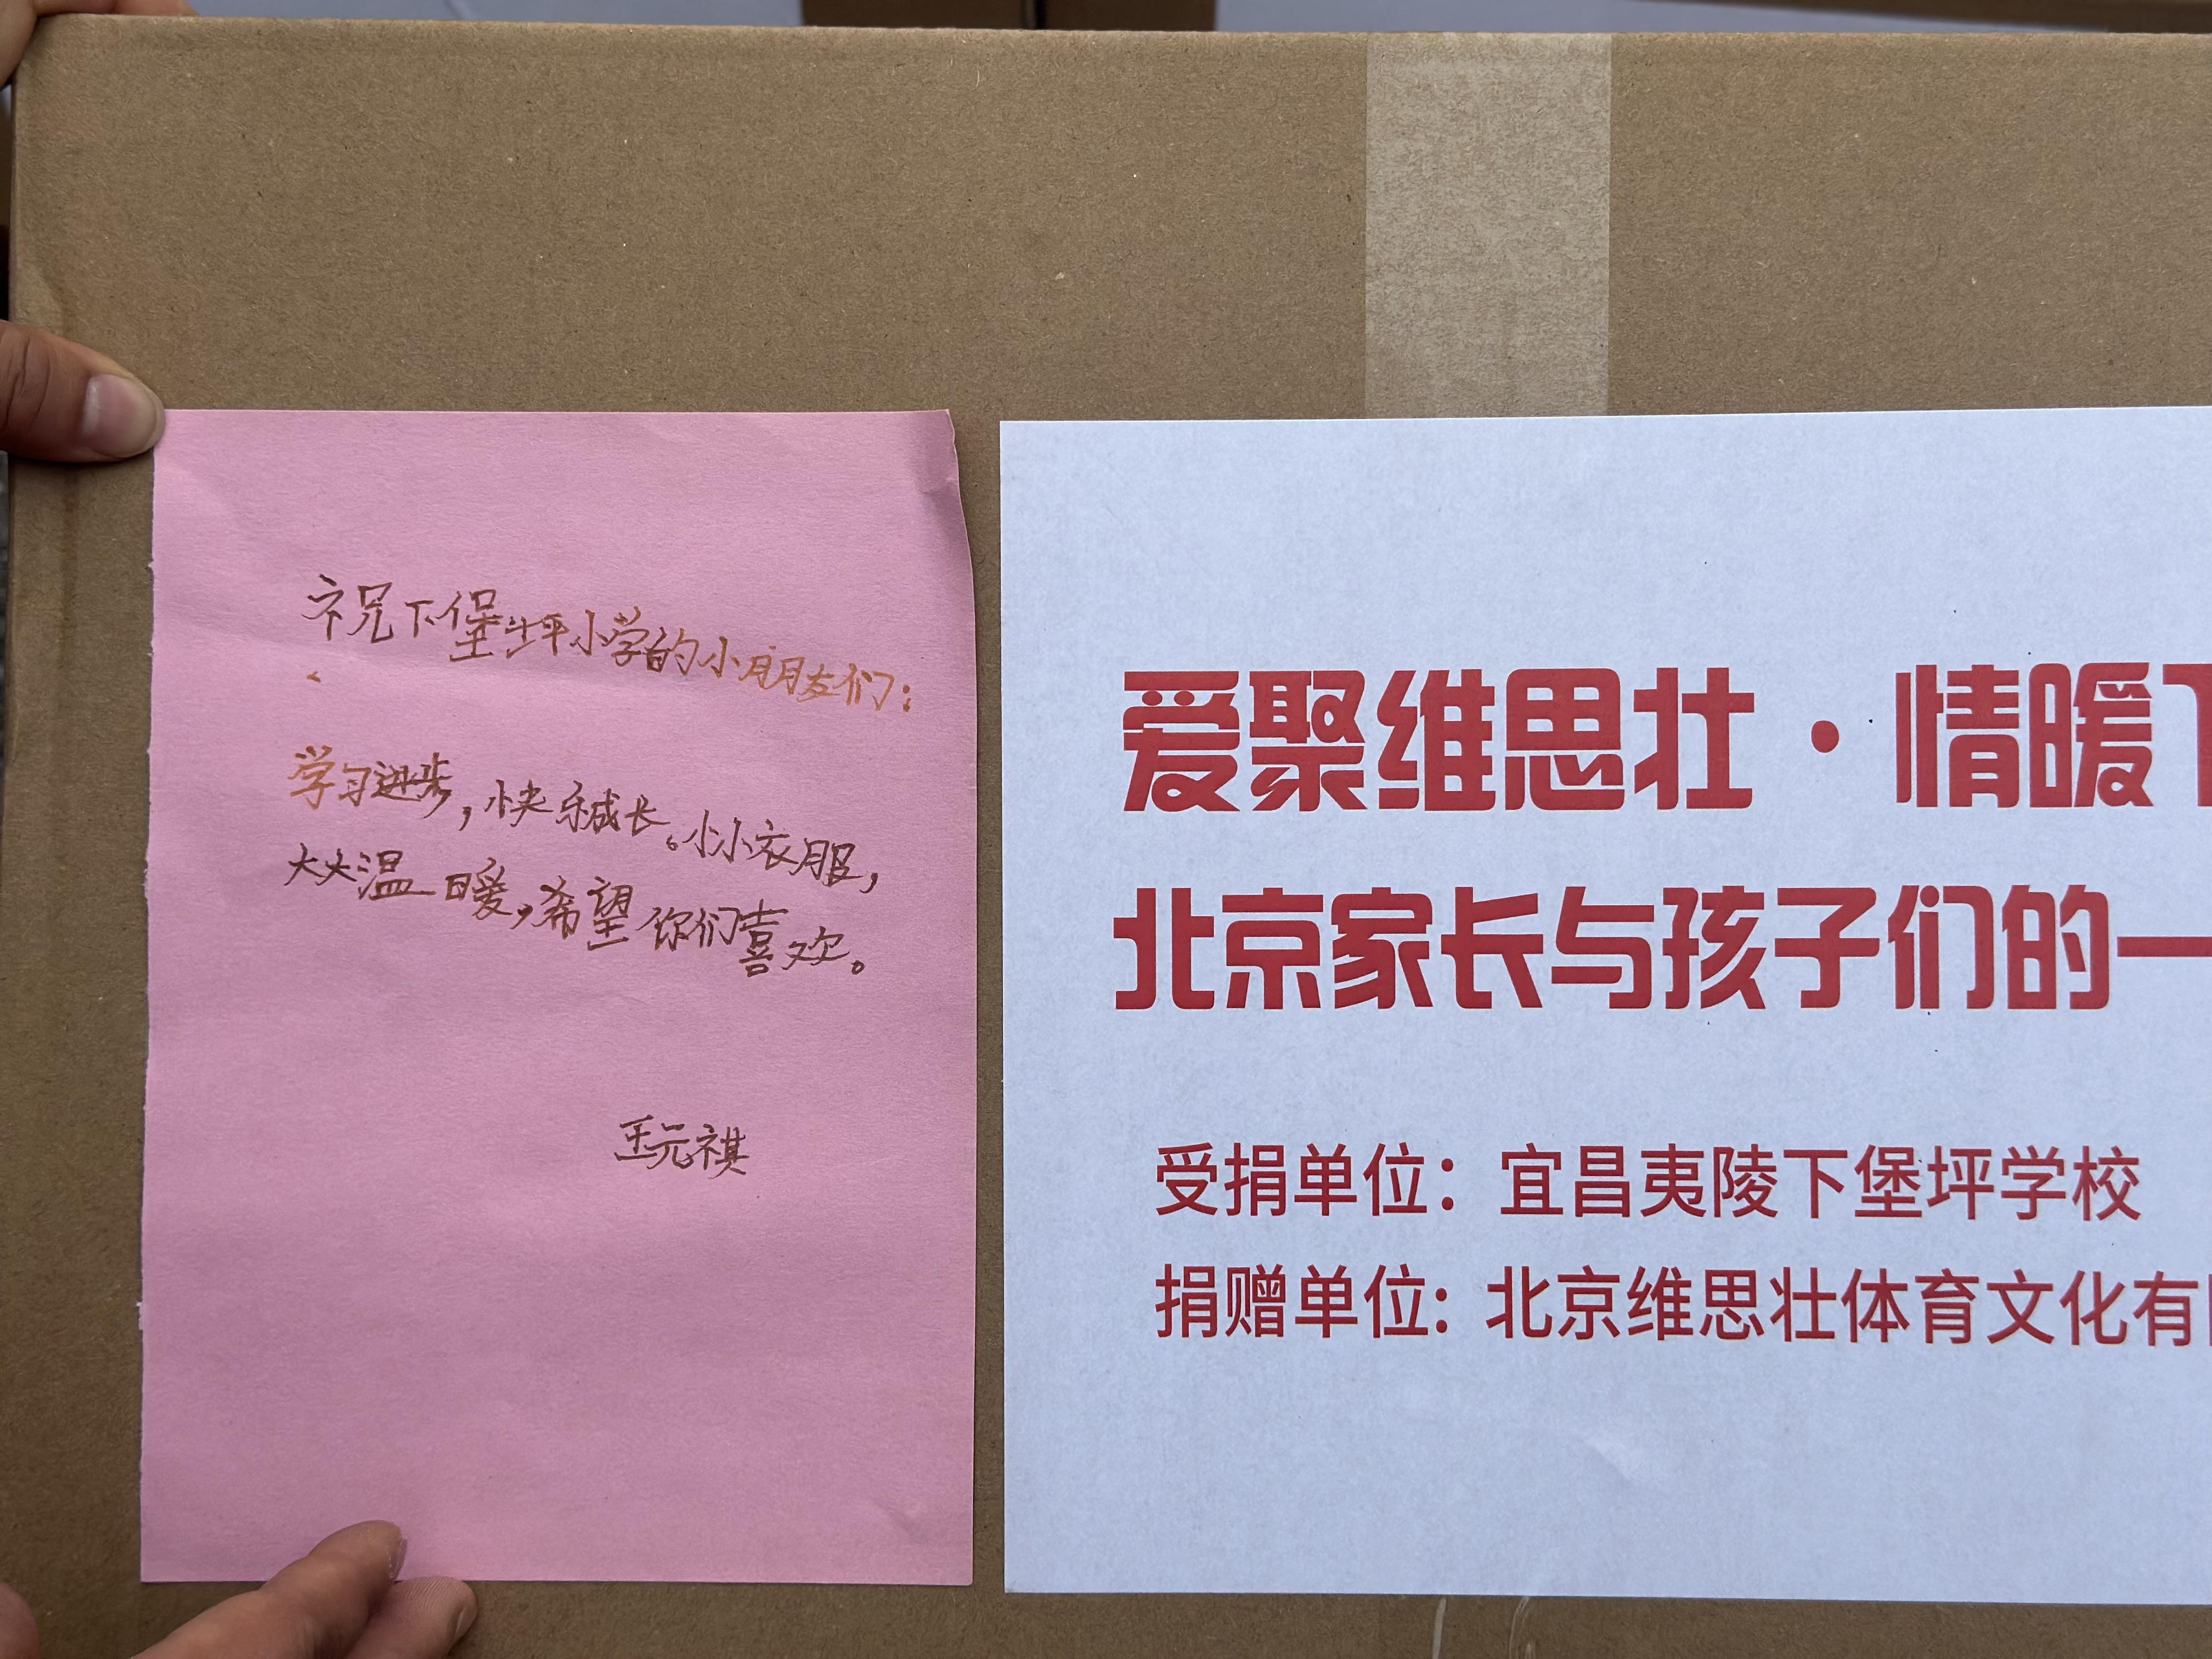 祝下堡坪小学的小朋友们：
学习进步，快乐成长。小小衣服，
大大温暖，希望你们喜欢。
王元祺
爱聚维思壮·情暖下
北京家长与孩子们的一
受捐单位：宜昌夷陵下堡坪学校
捐赠单位：北京维思壮体育文化有